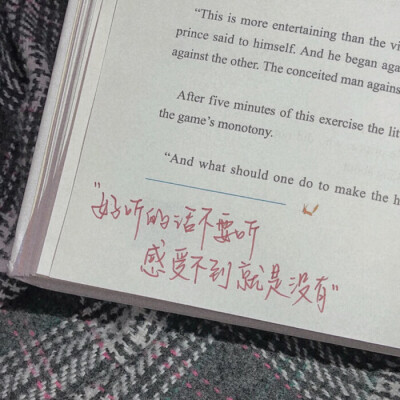 “This is more entertaining than the vi
prince said to himself. And he began aga
against the other. The conceited man agains
After five minutes of this exercise the lit
the game’s monotony.
“And what should one do to make the h
"好听的话不要听
感受不到就是没有"